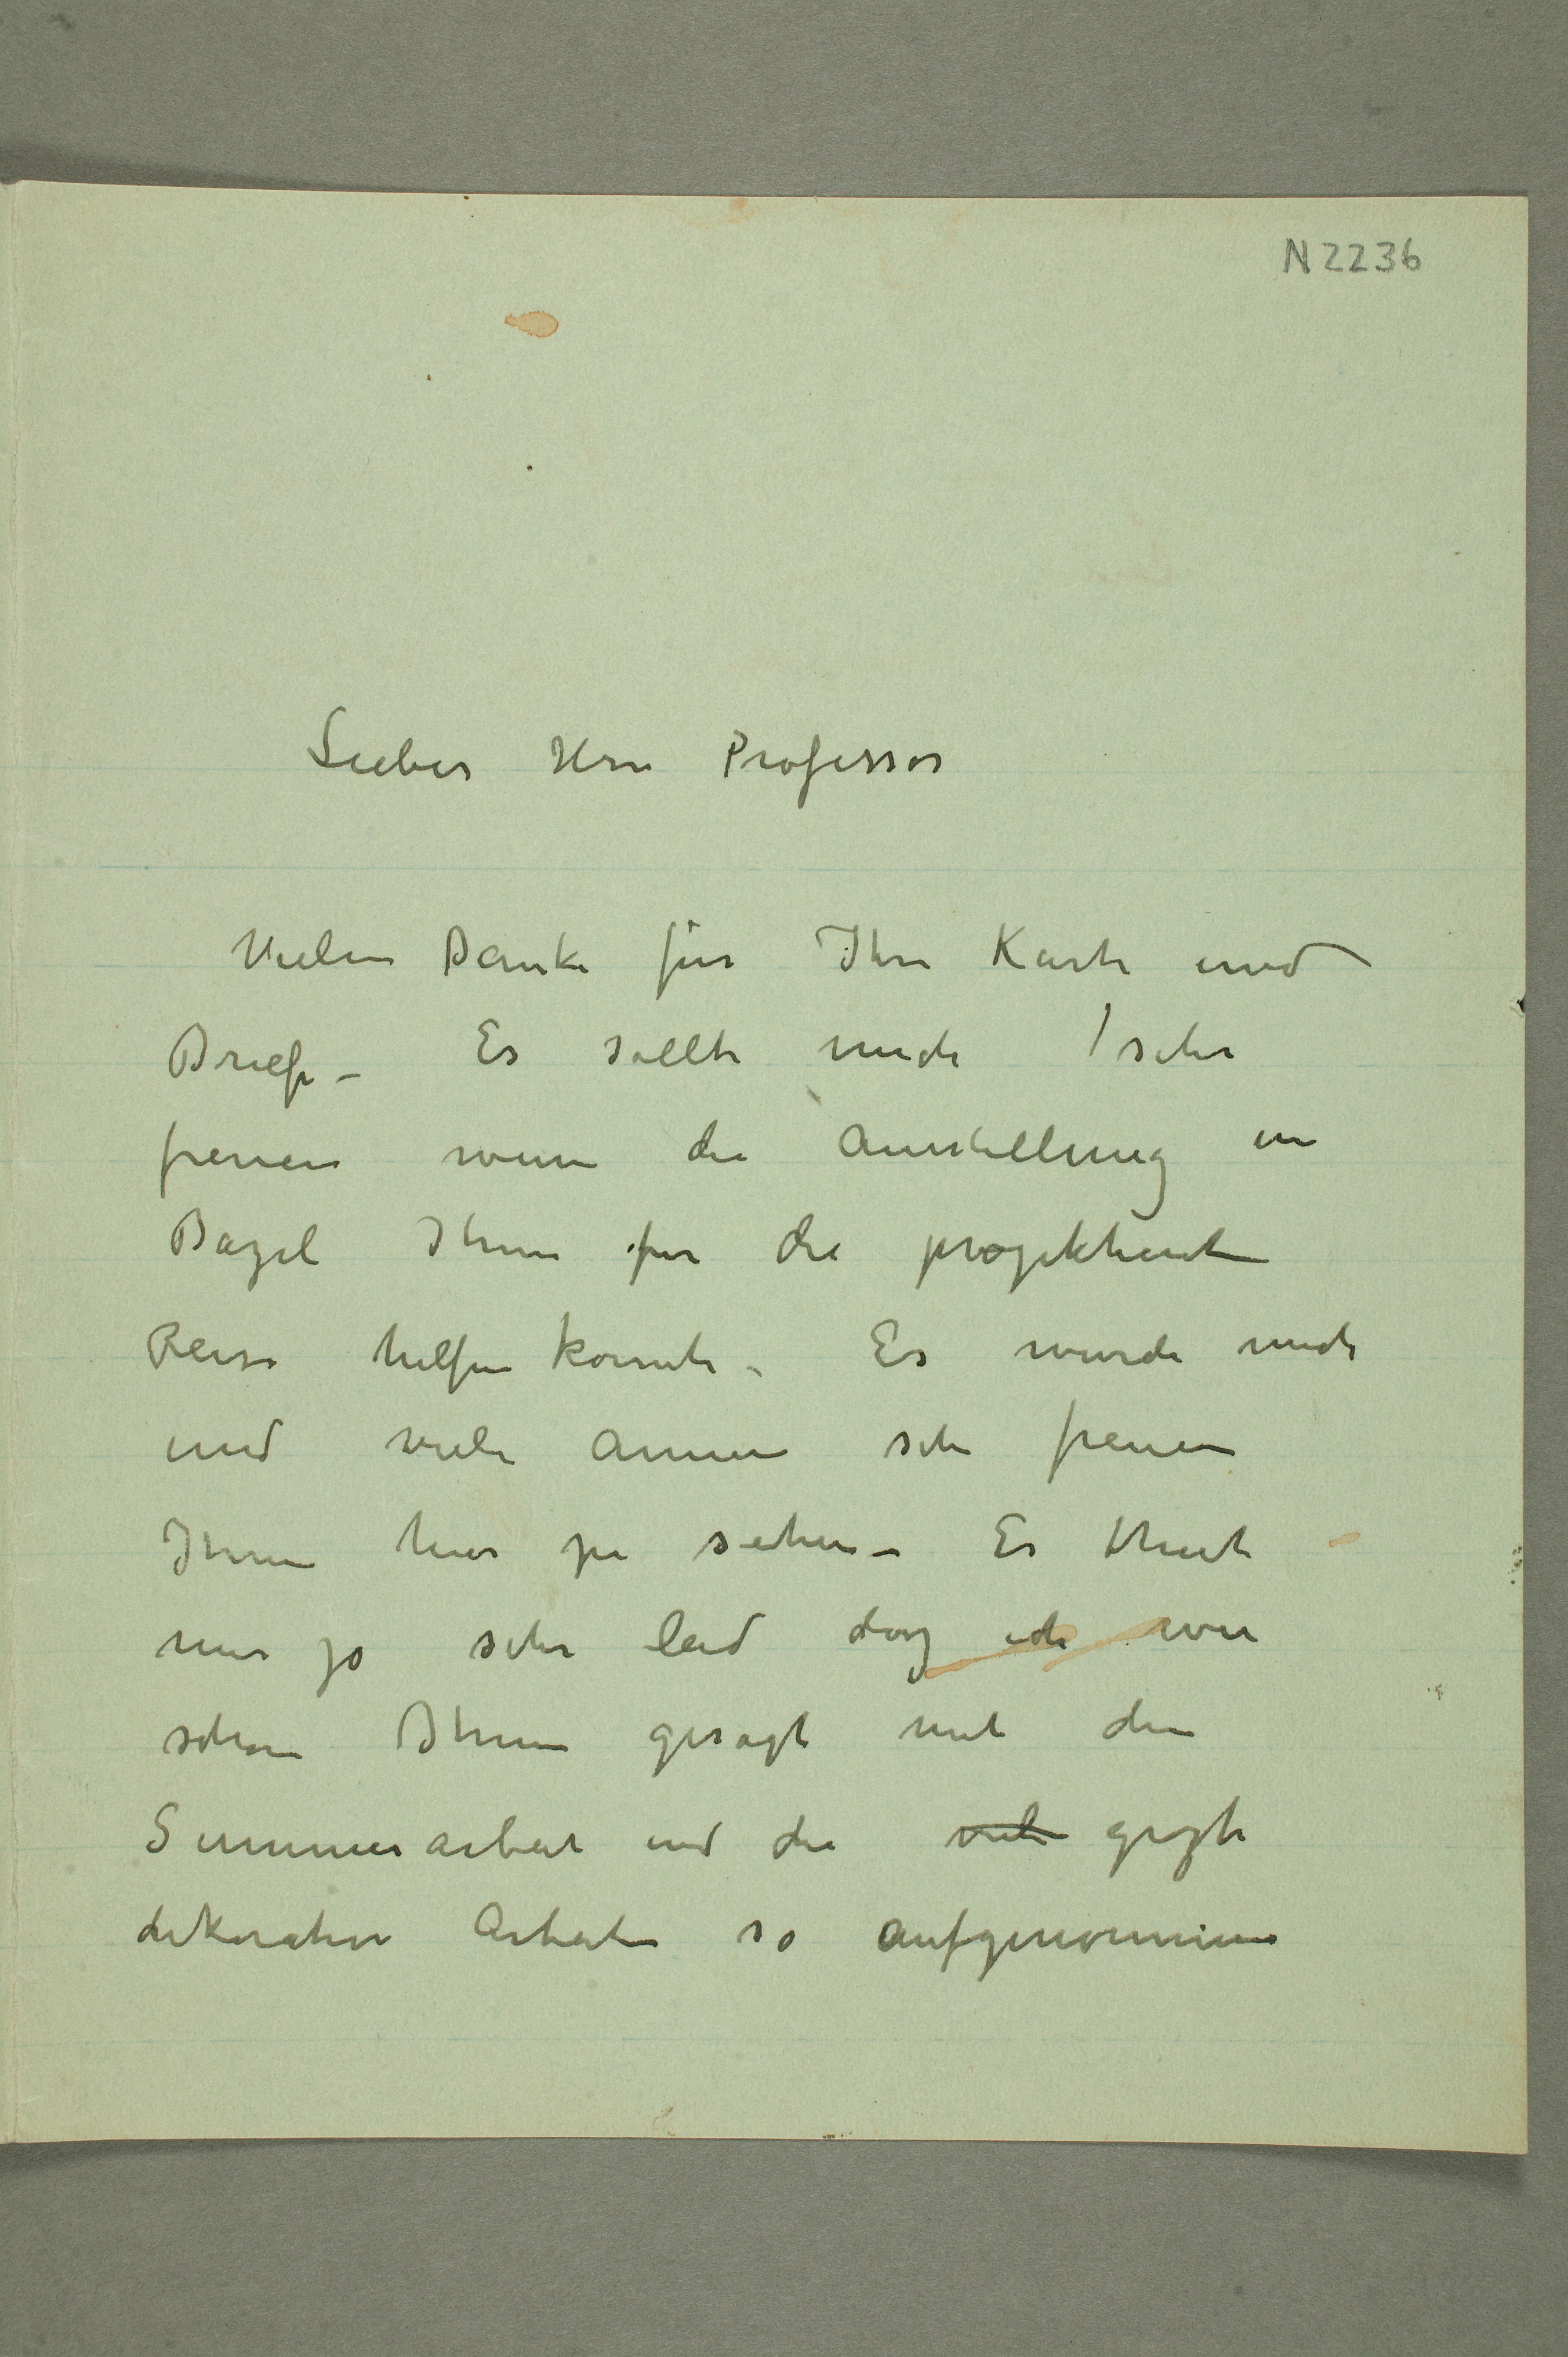 N 2236
Lieber Herr Professor
Vielen Danke für Ihre Karte und
Briefe – Es sollte mich sehr
freuen wenn die Ausstellung in
Bazel Ihnen fur die projektierte
Reise helfen konnte – Es wurde mich
und viele Annere sehr freuen
Ihnen hier zu sehen – Es thut
mir jo sehr leid dasz ich wie
schon Ihnen gesagt mit den
Summerarbeit und die viele grozte
dekorative Arbeiten so aufgenommen